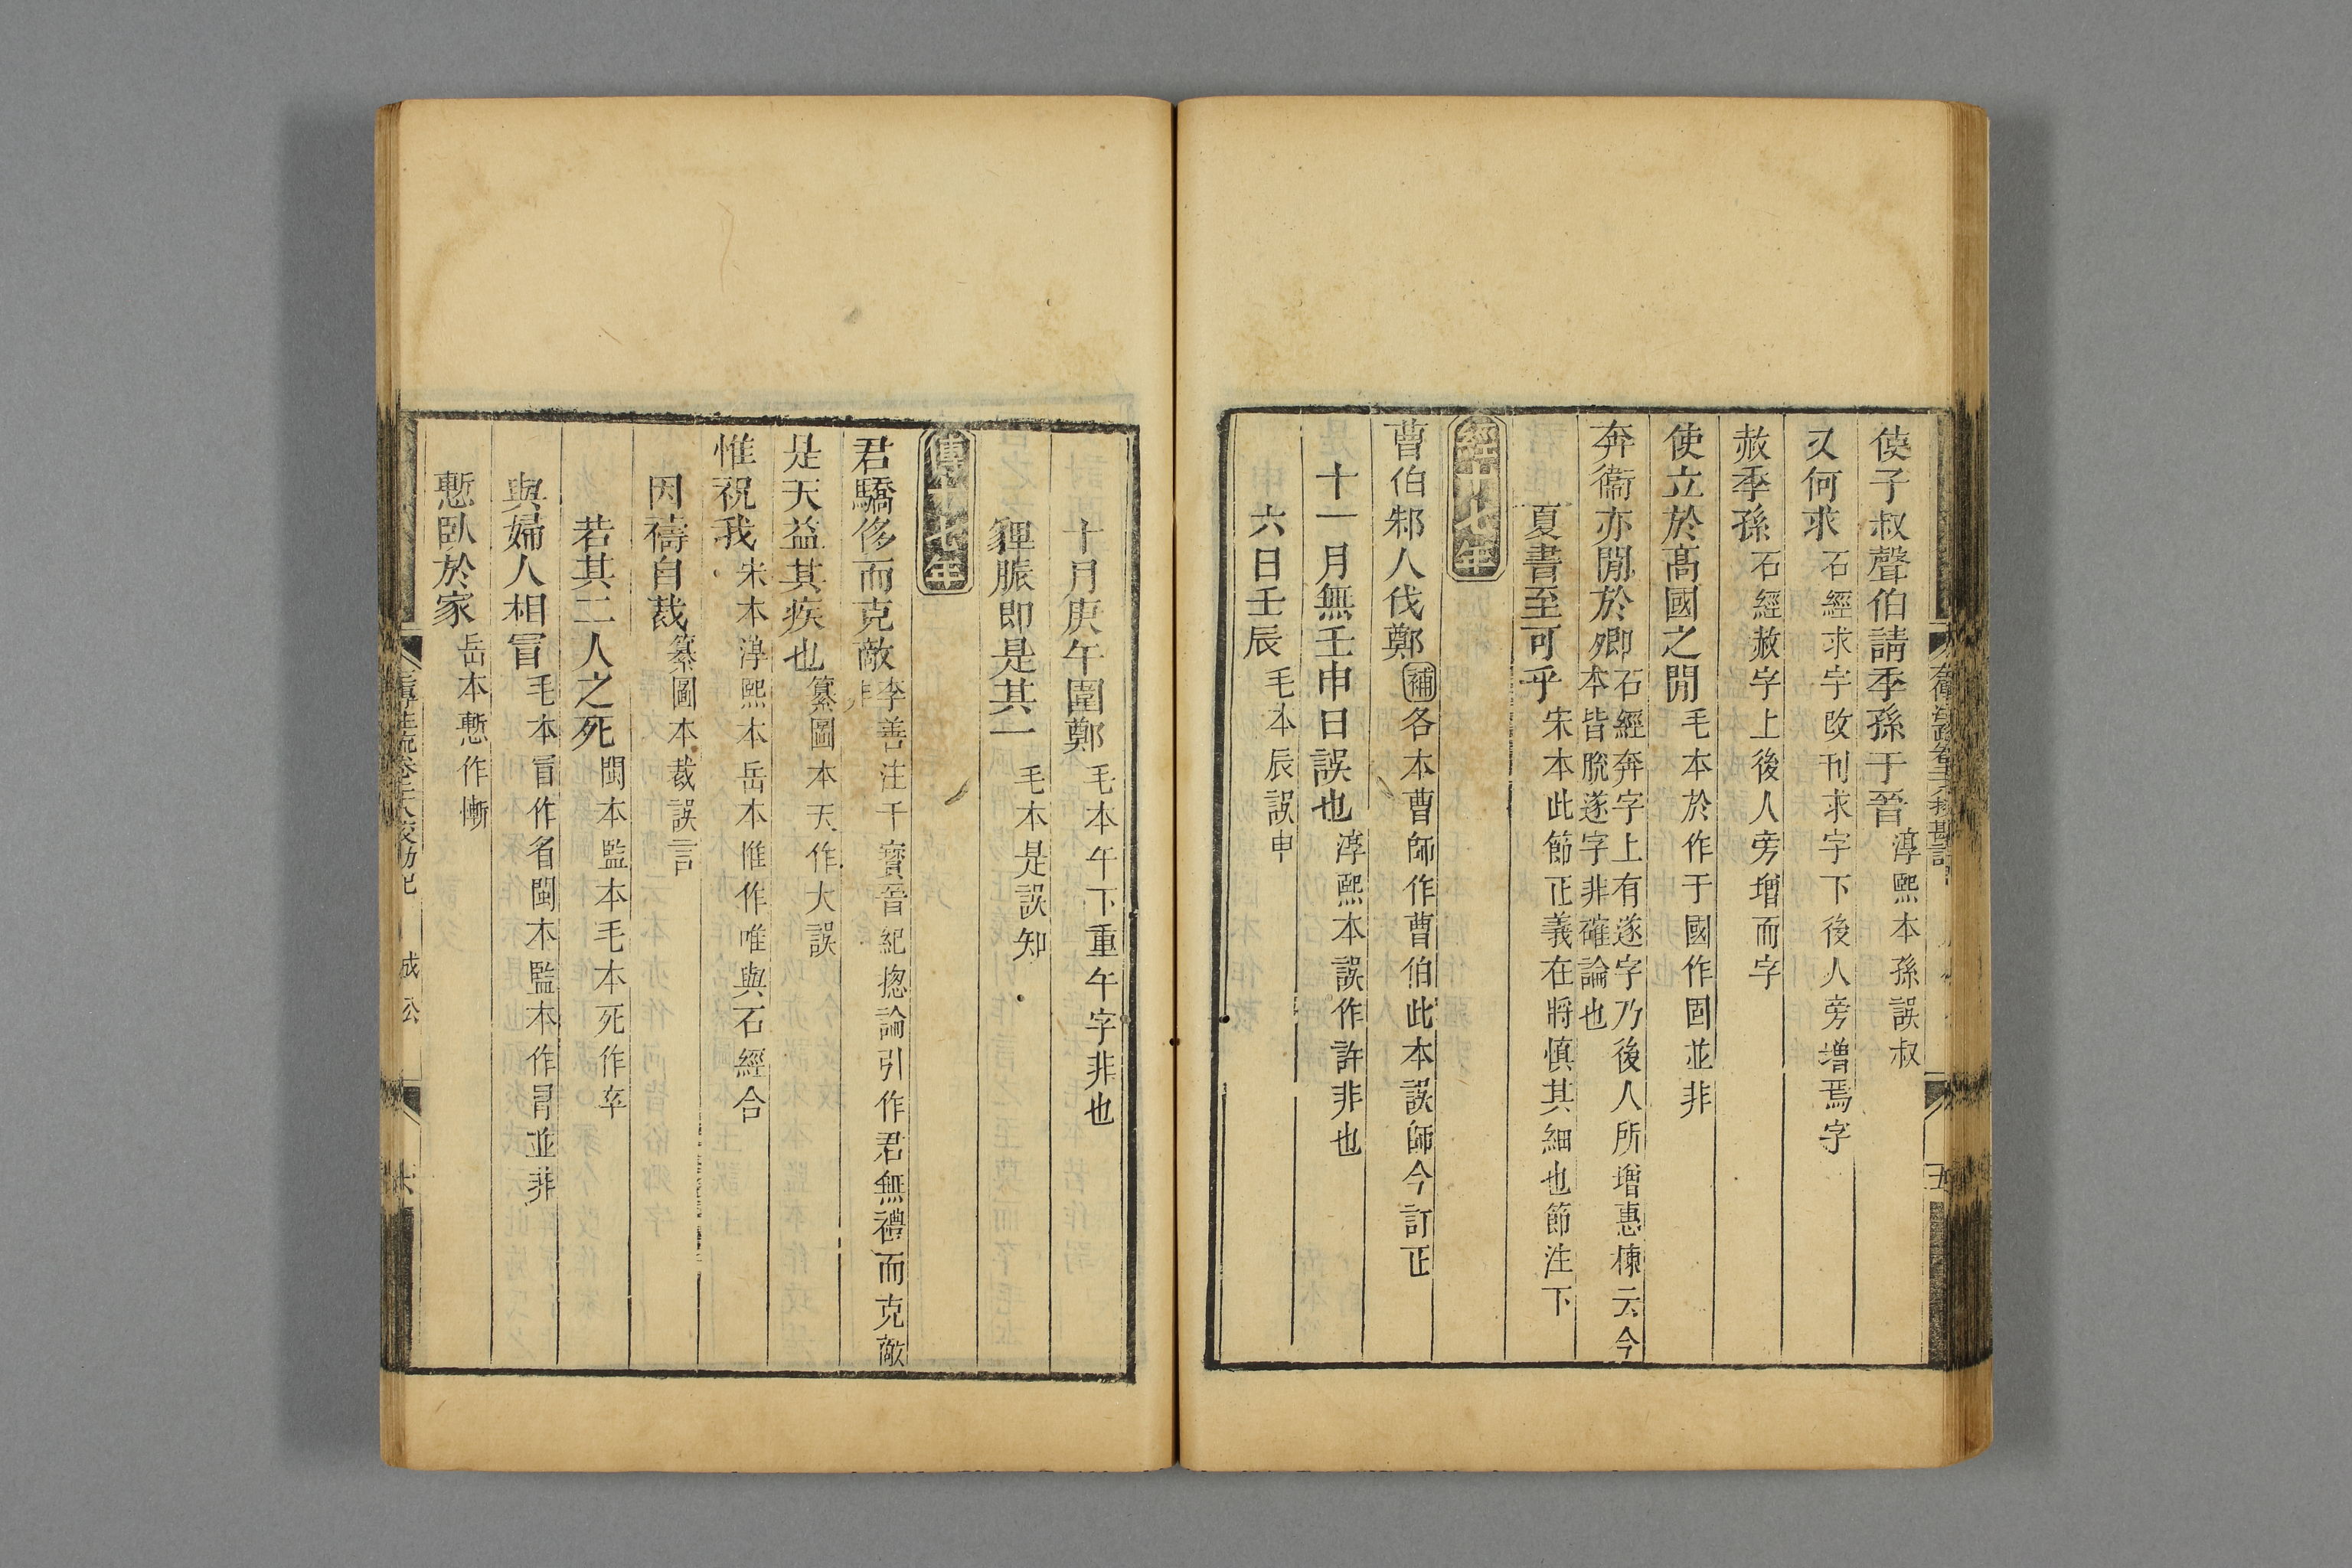 使子叔聲伯請季孫于晉淳熙本孫誤叔
又何求石經求字改刊求字下後人旁增焉字
赦季孫石經赦字上後人旁增而字
使立於高國之閒毛本於作于國作固並非
奔衞亦閒於卿石經奔字上有遂字乃後人所增惠棟云今
本皆脫遂字非確論也
夏書至可乎宋本此節正義在將慎其細也節注下
經十七年
曹伯邾人伐鄭補各本曹師作曹伯此本誤師今訂正
十一月無壬申日誤也淳熙本誤作許非也
六日壬辰毛本辰誤申
十月庚午圍鄭毛本午下重午字非也
貍脤即是其一毛本是誤知
傳十七年
君驕侈而克敵李善注干寶晉紀揔論引作君無禮而克敵
非
是天益其疾也纂圖本天作大誤
惟祝我宋本淳熙本岳本惟作唯與石經合
因禱自裁纂圖本裁誤言
若其二人之死閩本監本毛本死作卒
與婦人相冒毛本冒作名閩本監本作冐並非
慙臥於家岳本慙作慚
成公